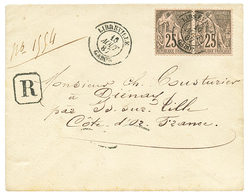 No 1554
LIBREVILLE
GABON
25 25
R
Monsieur Ch. Lusturier
à Diénay
par Is-sur-Tille
Côte d'Or France